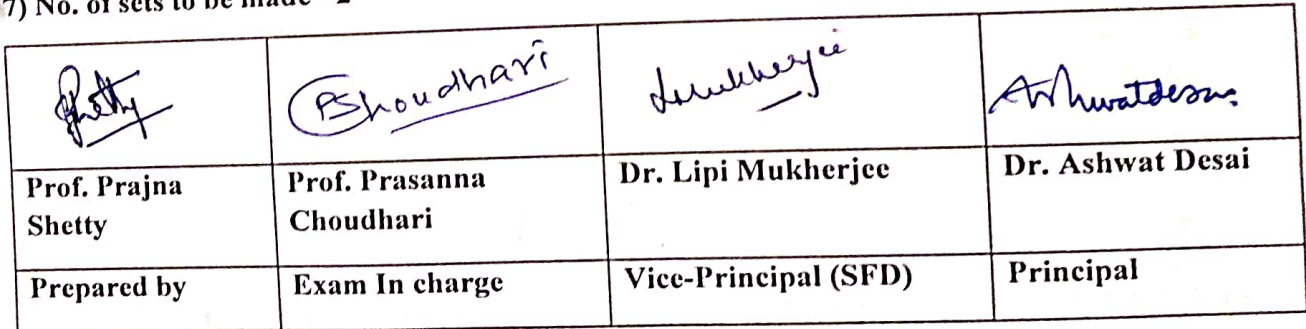 7) No. of sets to be made - 2
Shetty
PShoudhari
LMukherjee
Ashwatdesai
Prof. Prajna Shetty
Prof. Prasanna Choudhari
Dr. Lipi Mukherjee
Dr. Ashwat Desai
Prepared by
Exam In charge
Vice-Principal (SFD)
Principal